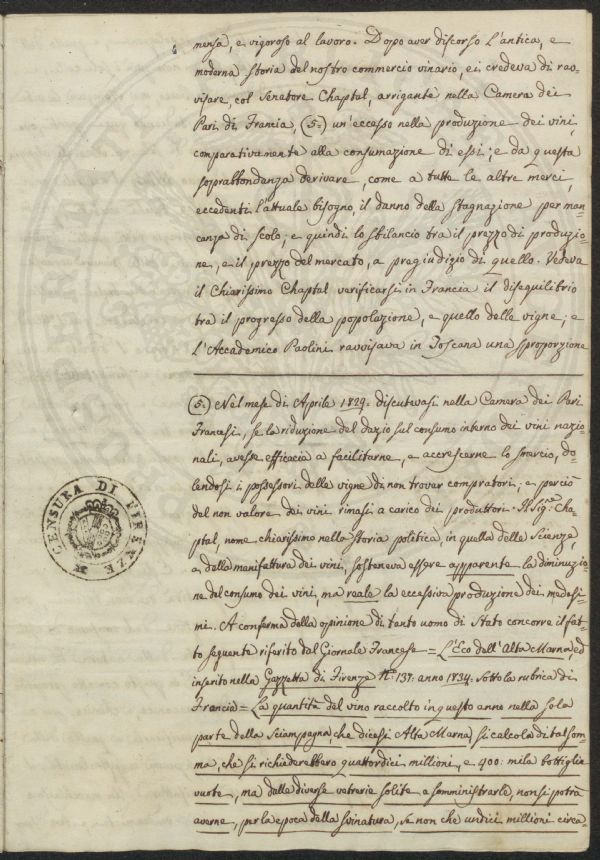 mensa, e vigoroso al lavoro. Dopo aver discorso l'antica, e
moderna storia del nostro commercio vinario, ei credeva di rav-
visare, col Senatore Chaptal, arrigante nella Camera dei
Pari di Francia, (5.) un'eccesso nella produzione dei vini,
comparativamente alla consumazione di essi; e da questa
soprabbondanza derivare, come a tutte le altre merci,
eccedenti l'attuale bisogno, il danno della stagnazione per man-
canza di scolo, e quindi lo sbilancio tra il prezzo di produzio-
ne, e il prezzo del mercato, a pregiudizio di quello. Vedeva
il Chiarissimo Chaptal verificarsi in Francia il disequilibrio
tra il progresso della popolazione, e quello delle vigne; e
l'Accademico Paolini ravvisava in Toscana una sproporzione
(5.) Nel mese di Aprile 1829. discutevasi nella Camera dei Pari
Francesi, se la riduzione del dazio sul consumo interno dei vini nazio-
nali, avesse efficacia a facilitarne, e accrescerne lo smercio, do-
lendosi i possessori delle vigne di non trovar compratori, e perciò
del non valore dei vini rimasi a carico dei produttori. Il Sig.e Cha-
ptal, nome chiarissimo nella storia politica, in quella delle Scienze,
e della manifattura dei vini, sosteneva essere apparente la diminuzio-
ne del consumo dei vini, ma reale la eccessiva produzione dei medesi-
mi. A conferma della opinione di tanto uomo di Stato concorre il fat-
to seguente riferito dal Giornale Francese = L'Eco dell'Alta Marna, ed
inserito nella Gazzetta di Firenze N.° 137. anno 1834. Sotto la rubrica di
Francia = La quantità del vino raccolto in questo anno nella sola
parte della Sciampagna, che dicesi Alta Marna, si calcola di tal som-
ma, che si richiederebbero quattordici millioni, e 400: mila bottiglie
vuote, ma dalle diverse vetrerie solite a somministrarle, non si potrà
averne, per la epoca della svinatura, se non che undici millioni circa.
CENSURA DI FIRENZE